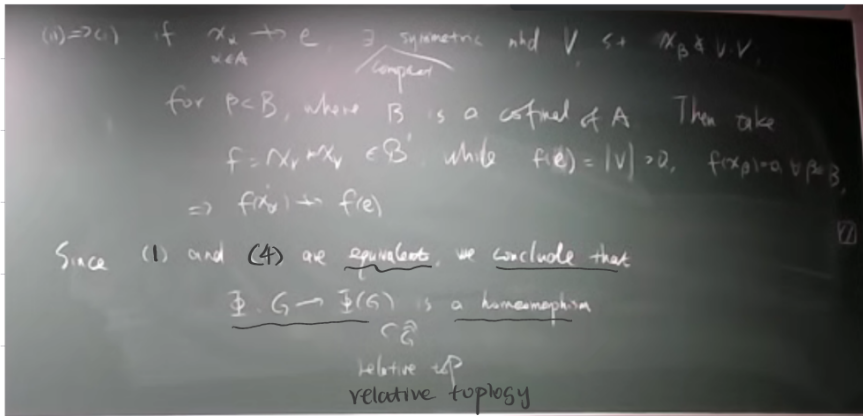 (ii)⇒(i) if x_α ↛ e, ∃ symmetric nbd V, s.t. x_β ∉ V·V,
α∈A compact
for β∈B, where B is a cofinal of A Then take
f = χ_V * χ_V ∈ B' while f(e) = |V| > 0, f(x_β)=0, ∀ β∈B,
⇒ f(x_α) ↛ f(e)
Since (1) and (4) are equivalent, we conclude that
Φ: G → Φ(G) is a homeomorphism
relative top
relative toplogy